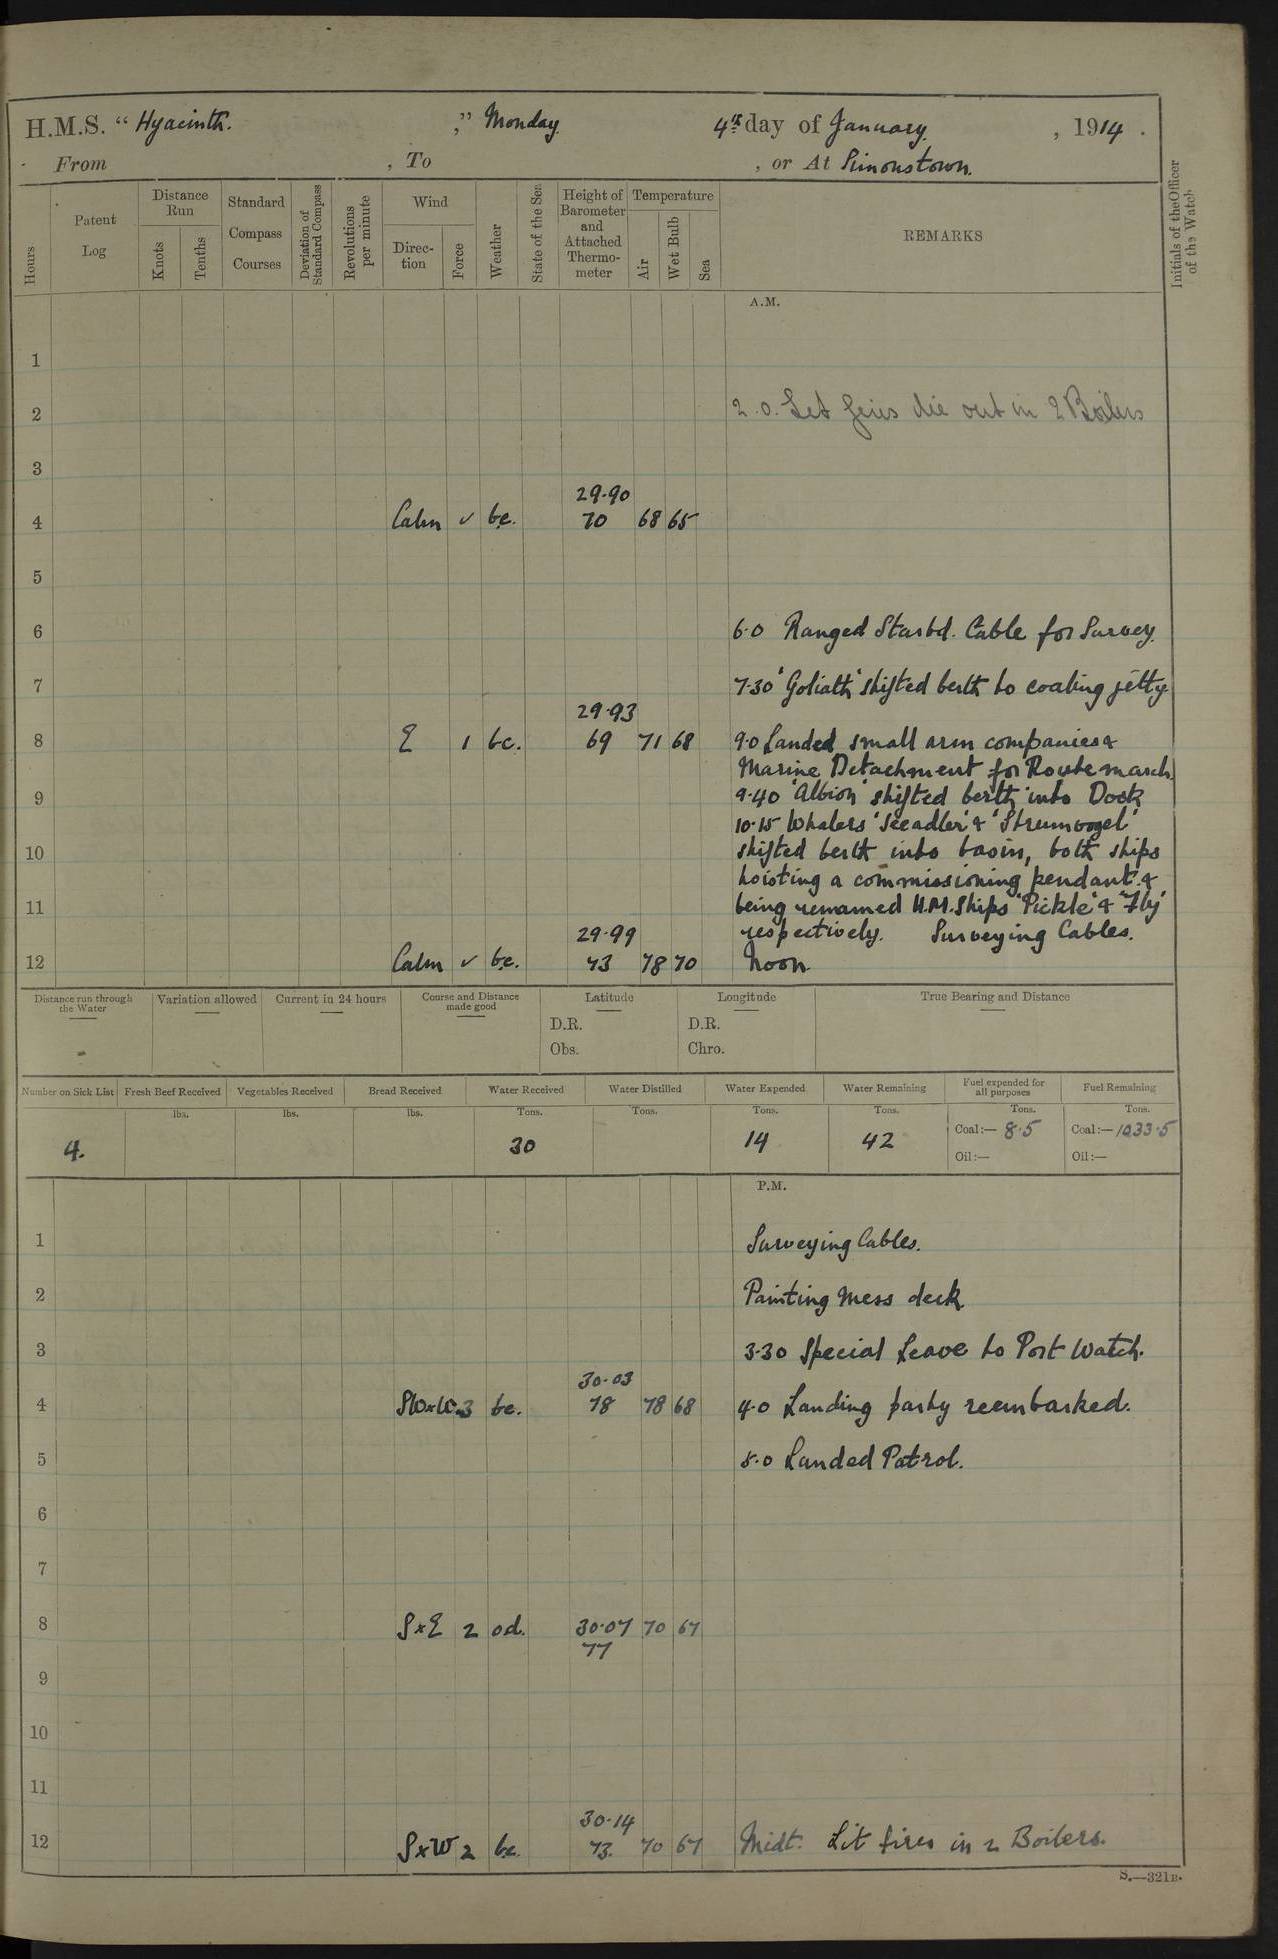 H.M.S. “ Hyacinth. ,” Monday 4th day of January, , 1914 .
From , To , or At Simonstown.
Hours
Patent Log
Distance Run
Knots
Tenths
Standard Compass Courses
Deviation of Standard Compass
Revolutions per minute
Wind
Direc-tion
Force
Weather
State of the Sea
Height of Barometer and Attached Thermo-meter
Temperature
Air
Wet Bulb
Sea
REMARKS
Initials of the Officer of the Watch
A.M.
1
2 2.0. Let fires die out in 2 Boilers
3
29.90
4 Calm ✓ bc. 70 68 65
5
6 6.0 Ranged Starbd. Cable for Survey.
7 7.30 'Goliath' shifted berth to coaling jetty
29.93
8 E 1 bc. 69 71 68 9.0 Landed small arm companies &
Marine Detachment for Route march
9 9.40 'Albion' shifted berth into Dock
10.15 Whalers 'Seeadler' & 'Strumvogel'
10 shifted berth into basin, both ships
hoisting a commissioning pendant &
11 being renamed H.M.Ships 'Pickle' & 'Fly'
29.99 respectively. Surveying Cables.
12 Calm ✓ bc. 73 78 70 Noon
Distance run through the Water
Variation allowed
Current in 24 hours
Course and Distance made good
Latitude
D.R.
Obs.
Longitude
D.R.
Chro.
True Bearing and Distance
Number on Sick List
4.
Fresh Beef Received
lbs.
Vegetables Received
lbs.
Bread Received
lbs.
Water Received
Tons.
30
Water Distilled
Tons.
Water Expended
Tons.
14
Water Remaining
Tons.
42
Fuel expended for all purposes
Tons.
Coal:— 8.5
Oil:—
Fuel Remaining
Tons.
Coal:— 1033.5
Oil:—
P.M.
1 Surveying Cables.
2 Painting Mess deck
3 3.30 Special Leave to Port Watch.
30.03
4 SWxW. 3 bc. 78 78 68 4.0 Landing party reembarked.
5 5.0 Landed Patrol.
6
7
8 SxE 2 od. 30.07 70 67
77
9
10
11
30.14
12 SxW 2 bc. 73. 70 67 Midt. Lit fires in 2 Boilers.
S.—321B.